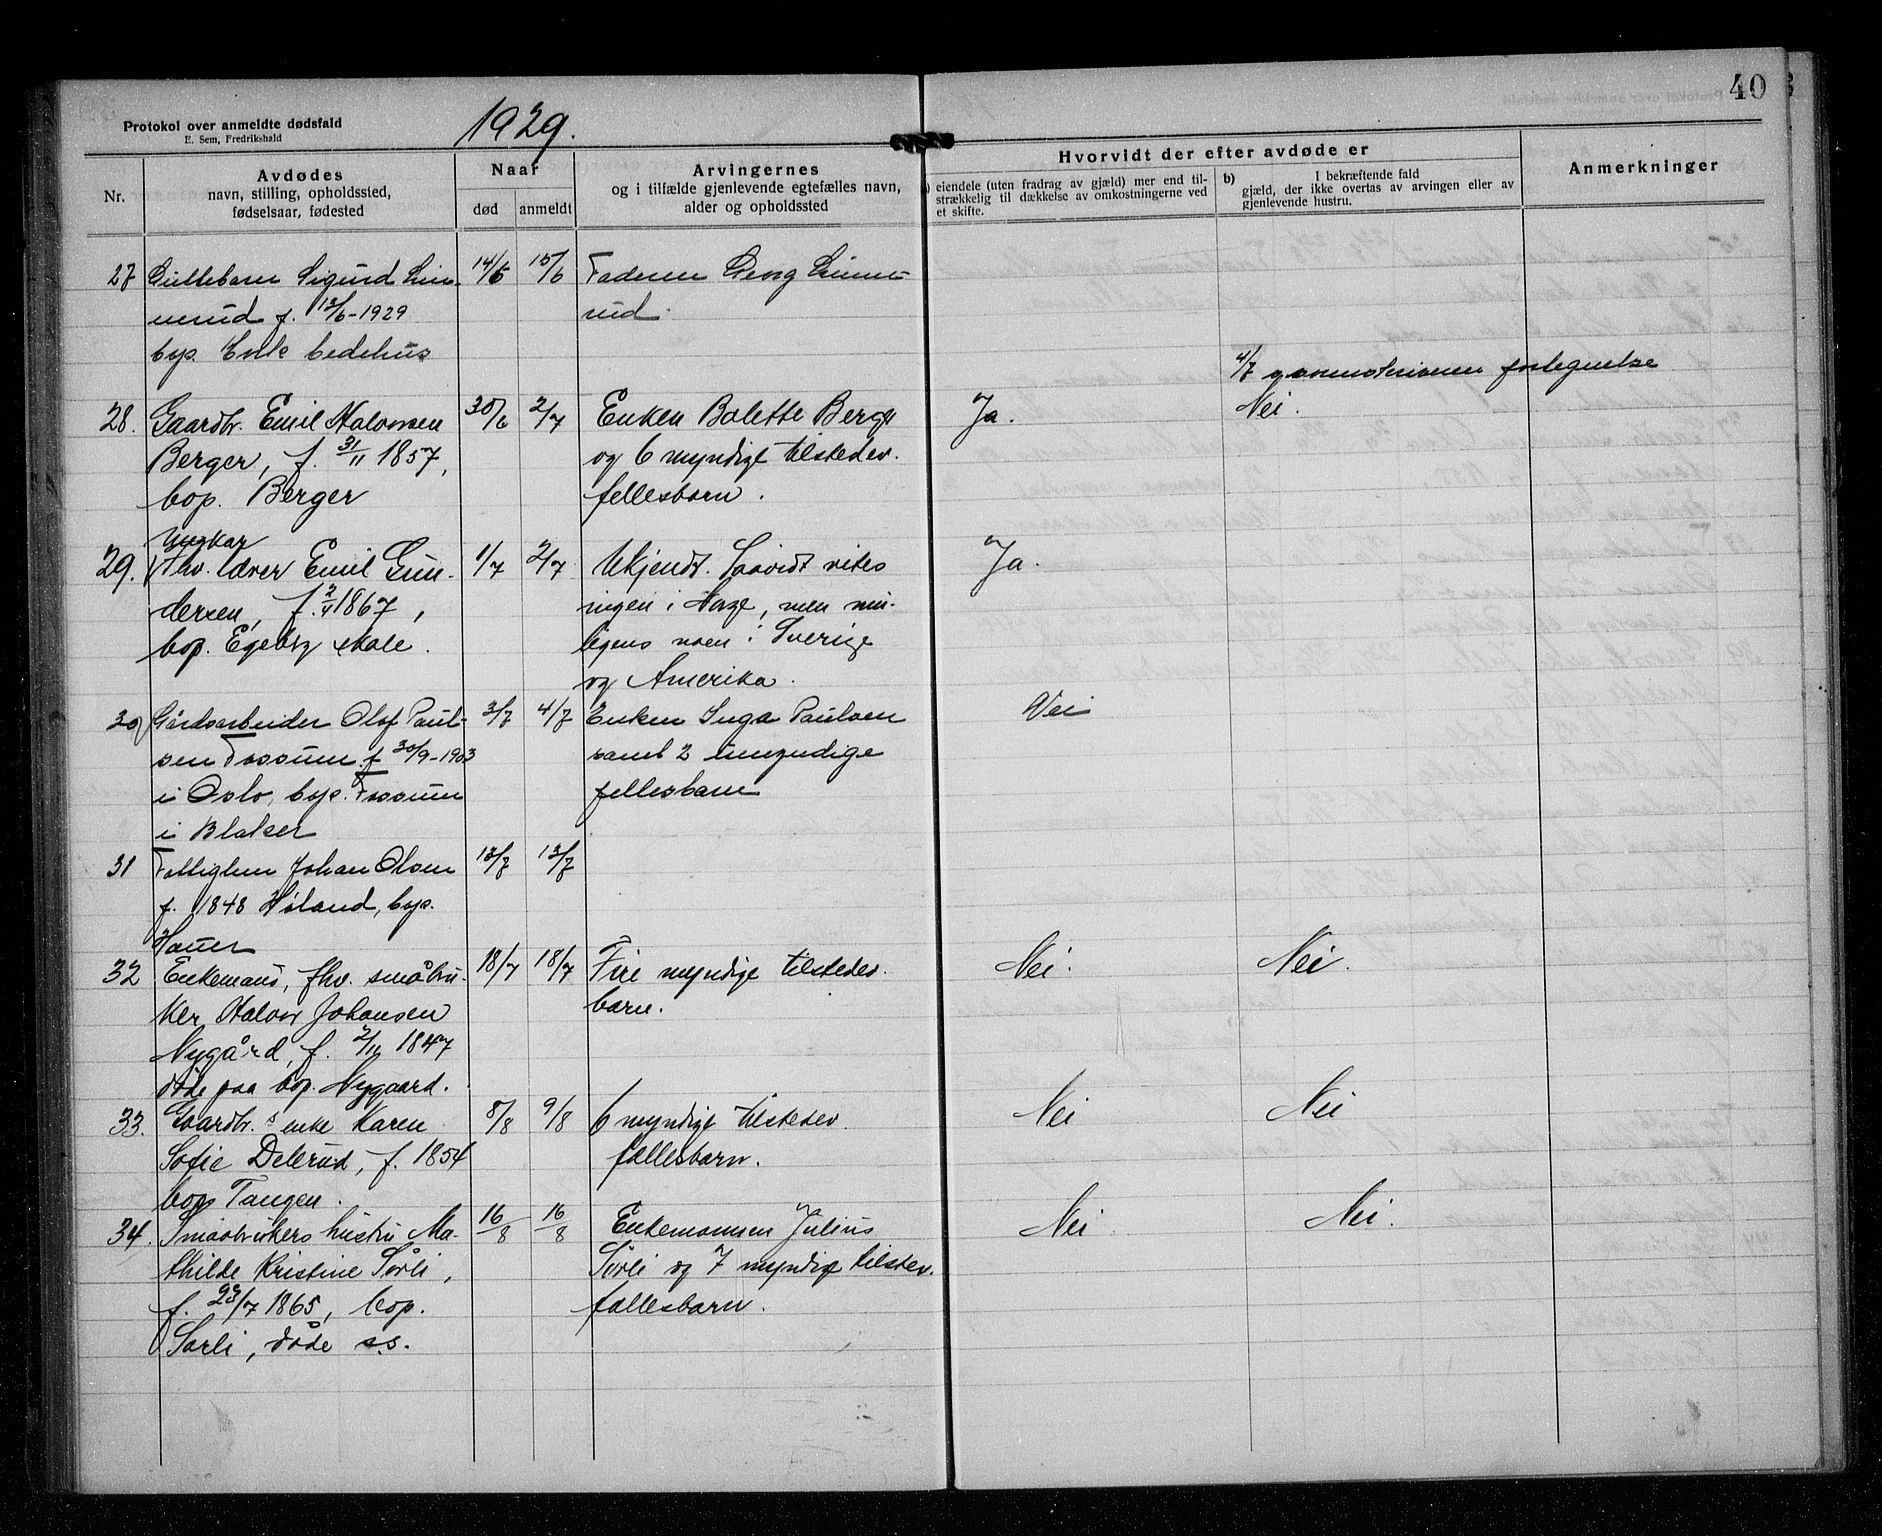 40
Protokol over anmeldte dødsfald
E. Sem, Fredrikshald
1929.
Nr.
Avdødes
navn, stilling, opholdssted,
fødselsaar, fødested
Naar
død
anmeldt
Arvingernes
og i tilfælde gjenlevende egtefælles navn,
alder og opholdssted
Hvorvidt der efter avdøde er
) eiendele (uten fradrag av gjæld) mer end til-
strækkelig til dækkelse av omkostningerne ved
et skifte.
b) I bekræftende fald
gjæld, der ikke overtas av arvingen eller av
gjenlevende hustru.
Anmerkninger
27 Guttebarn Sigurd Lin- 14/6 15/6 Faderen Georg Linne-
nerud f. 12/6-1929 rud.
bop. bedehus
4/7 fortegnelse
28. Gaardbr. Emil Halvorsen 30/6 2/7 Enken Bolette Berger Ja. Nei.
Berger, f. 31/11 1857, og 6 myndige tilstedev.
bop. Berger fellesbarn.
Ungkar
29. fhv. lærer Emil Gun- 1/7 2/7 Ukjendt. Saavidt vites Ja.
dersen, f. 2/4 1867, ingen i Norge, men mu-
bop. Egeberg skole. ligens noen i Sverige
og Amerika.
30 Gårdsarbeider Olaf Paul- 3/7 4/7 Enken Inga Paulsen Nei
sen Fossum f 30/9-1903 samt 2 umyndige
i Oslo, bop. Fossum fellesbarn
i Blaker
31 Fattiglem Johan Olsen 13/7 13/7
f. 1848 Høland, bop.
Hauer
32 Enkemand, fhv. småbru- 18/7 18/7 Fire myndige tilstedev. Nei. Nei.
ker Halvor Johansen barn.
Nygård, f. 2/11 1847
døde paa bop. Nygaard.
33. Gaardbr.s enke Karen 8/8 9/8 6 myndige tilstedev. Nei Nei
Sofie Delerud, f. 1854 fællesbarn.
bop Tangen.
34. Smaabrukers hustru Ma- 16/8 16/8 Enkemannen Julius Nei. Nei.
thilde Kristine Sørli, Sørli og 7 myndige tilstev.
f. 23/7 1865, bop. fællesbarn.
Sørli, døde s.s.